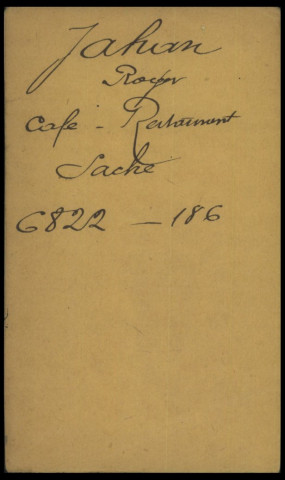 Jahan
Roger
Café - Restaurant
Saché
6822 - 186